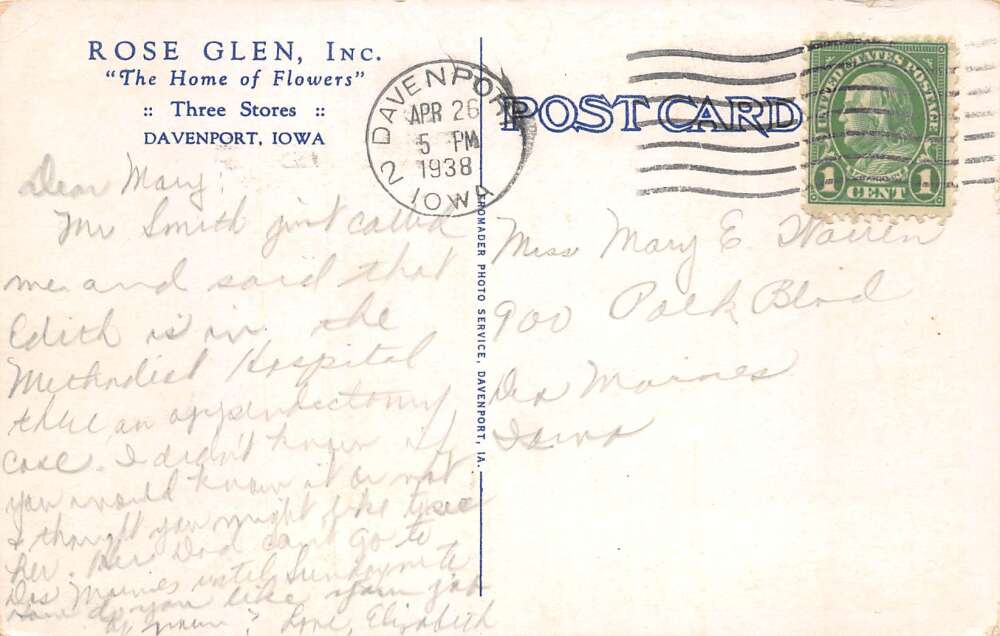 ROSE GLEN, INC.
"The Home of Flowers"
:: Three Stores ::
DAVENPORT, IOWA
DAVENPORT
APR 26
5 PM
1938
2 IOWA
POST CARD
UNITED STATES POSTAGE
1 CENT 1
FROMADER PHOTO SERVICE, DAVENPORT, IA.
Dear Mary:
Mr Smith just called
me and said that
Edith is in the
Methodist Hospital
there, an appendectomy
case. I didn't know if
you would know it or not
& thought you might like to see
her. Her Dad can't go to
Des Moines until Sunday
do you like your job
by now? Love, Elizabeth
Miss Mary E. Warren
900 Polk Blvd
Des Moines
Iowa